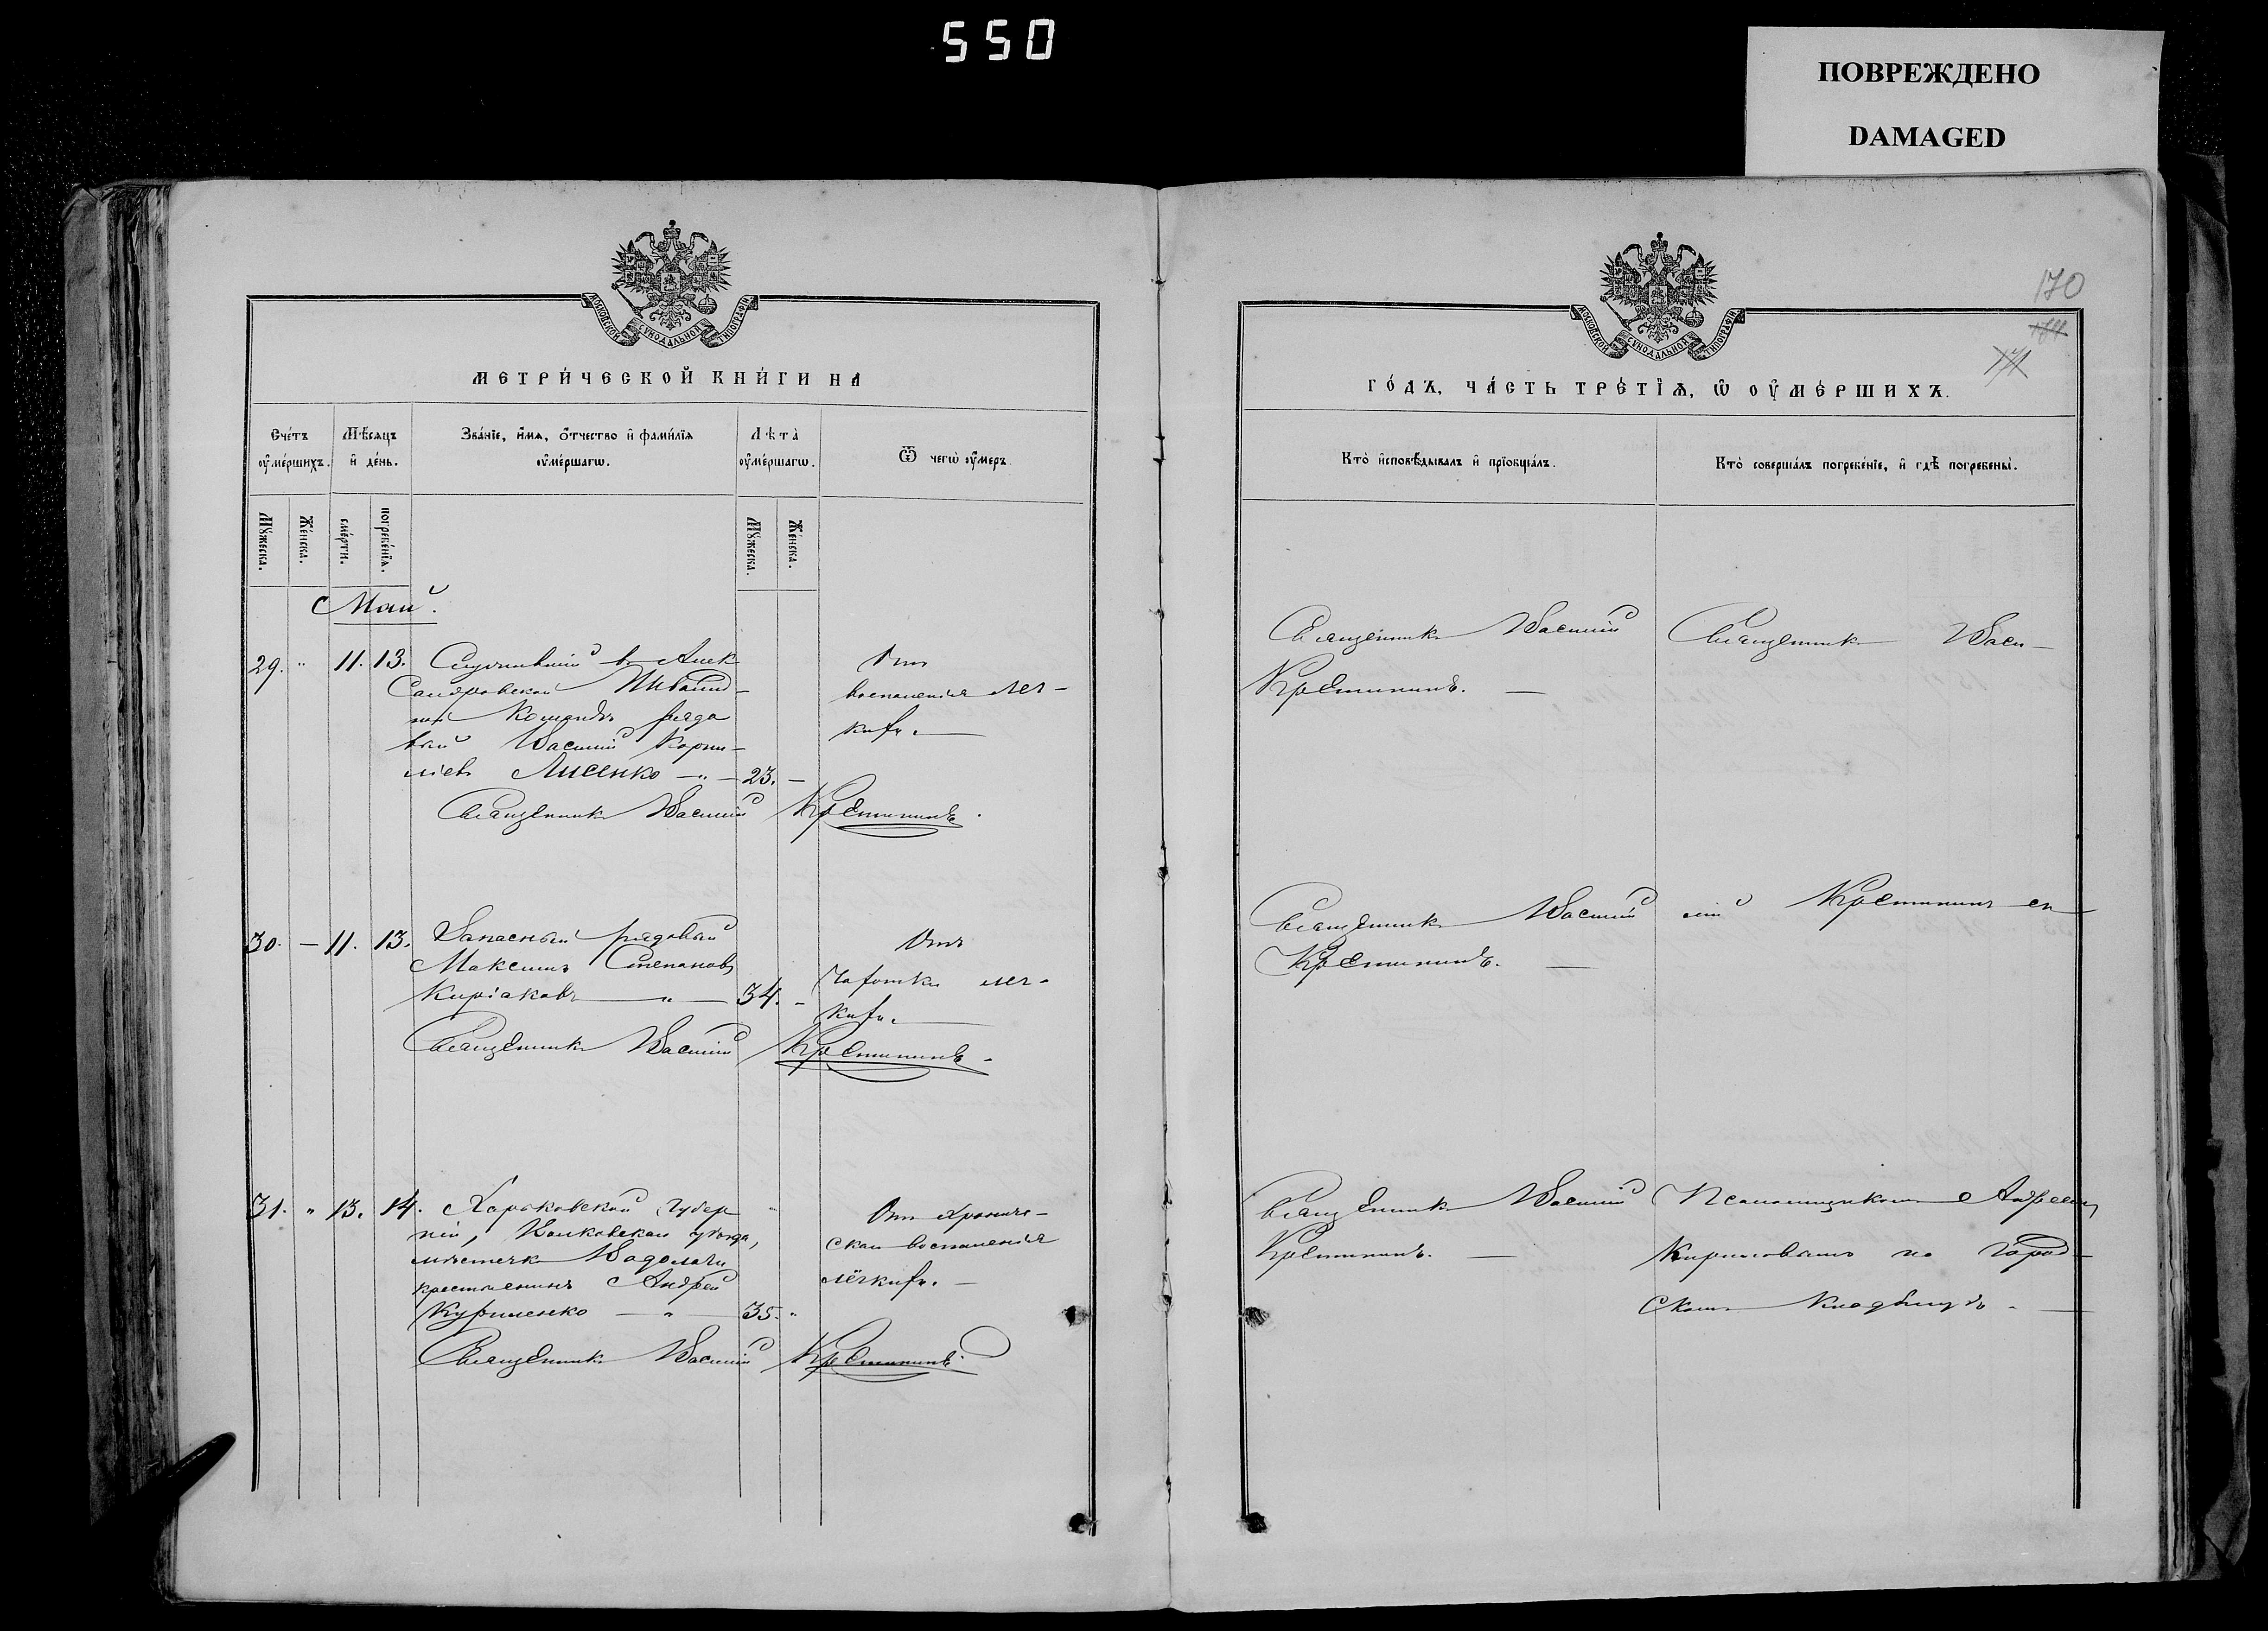 550
ПОВРЕЖДЕНО
DAMAGED
МОСКОВСКОЙ СУНОДАЛЬНОЙ ТИПОГРАФІИ
МЕТРИ́ЧЕСКОЙ КНИ́ГИ НА
Сче́тъ ᲂу҆ме́ршихъ.
Мѣ́сяцъ и҆ де́нь.
Зва́нїе, и҆́мѧ, ѻ҆́тчество и҆ фами́лїѧ ᲂу҆ме́ршагѡ.
Лѣта̀ ᲂу҆ме́ршагѡ.
Ѿ чегѡ̀ ᲂу҆́меръ
Мꙋ́жеска.
Же́нска.
сме́рти.
погребе́нїѧ.
Мꙋ́жеска.
Же́нска.
Май.
29. " 11. 13. Служившій в Алек
сандровской
ной Командѣ рядо
вой Василій Корни-
ліевъ Лисенко — " — 23. —
Отъ
воспаленія лег-
кихъ.
Священникъ Василій Крестининъ.
30. — 11. 13. Запасный рядовый
Максимъ Степановъ
Киріаковъ — " — 34. —
Отъ
Чахотки лег-
кихъ.
Священникъ Василій Крестининъ.
31. " 13. 14. Харьковской Губер
ніи, Валковскаго уѣзда,
мѣстечка Водолаги
крестьянинъ Андрей
Куриленко — " — 35. "
Отъ хрониче-
скаго воспаленія
лёгкихъ.
Священникъ Василій Крестининъ
170
184
171
МОСКОВСКОЙ СУНОДАЛЬНОЙ ТИПОГРАФІИ
ГО́ДЪ, ЧА́СТЬ ТРЕ́ТЇѦ, Ѡ҆ ОУ҆МЕ́РШИХЪ.
Кто̀ и҆сповѣ́дывалъ и҆ прїобща́лъ.
Кто̀ соверша́лъ погребе́нїе, и҆ гдѣ̀ погребены̀.
Священникъ Василій
Крестининъ. —
Священникъ Васи-
Священникъ Василій
Крестининъ. —
лій Крестининъ съ
Священникъ Василій
Крестининъ. —
Псаломщикомъ Андреемъ
Кирилловымъ на Город-
скомъ Кладбищѣ. —